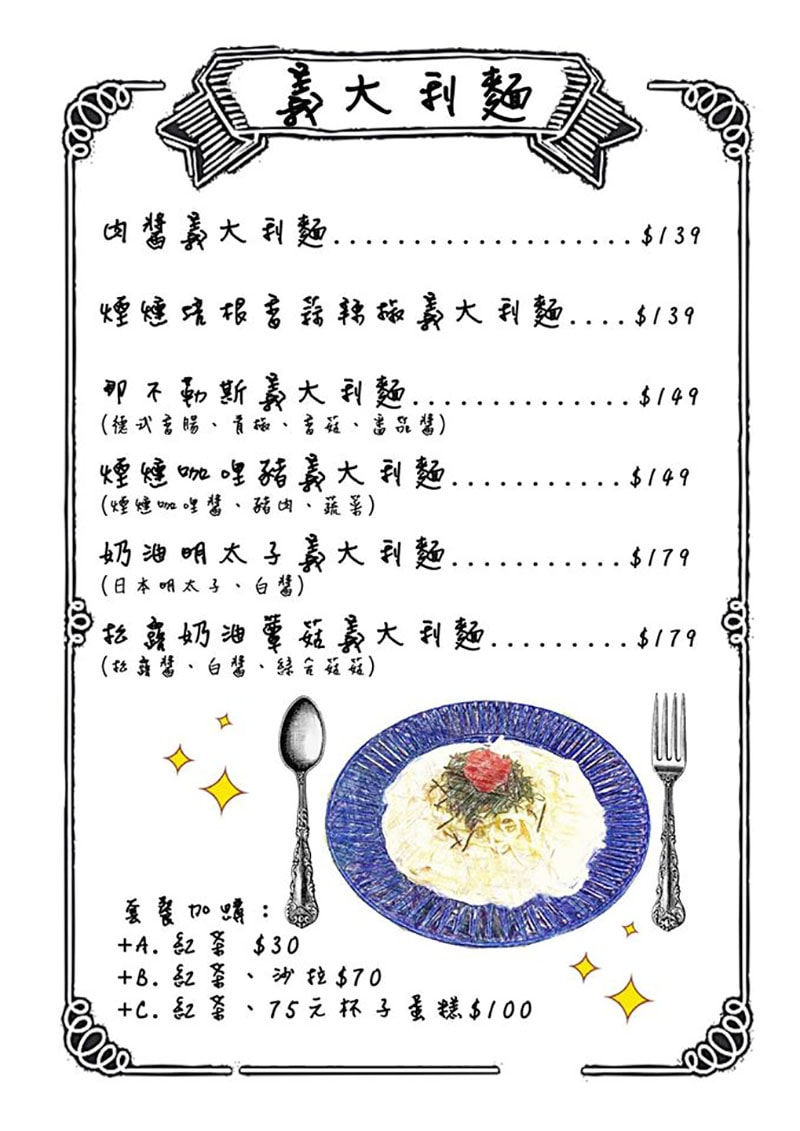 義大利麵
肉醬義大利麵...................$139
煙燻培根香蒜辣椒義大利麵....$139
那不勒斯義大利麵..............$149
(德式香腸、青椒、香菇、番茄醬)
煙燻咖哩豬義大利麵...........$149
(煙燻咖哩醬、豬肉、蔬菜)
奶油明太子義大利麵...........$179
(日本明太子、白醬)
松露奶油蕈菇義大利麵.........$179
(松露醬、白醬、綜合菇菇)
套餐加購：
+A. 紅茶 $30
+B. 紅茶、沙拉$70
+C. 紅茶、75元杯子蛋糕$100